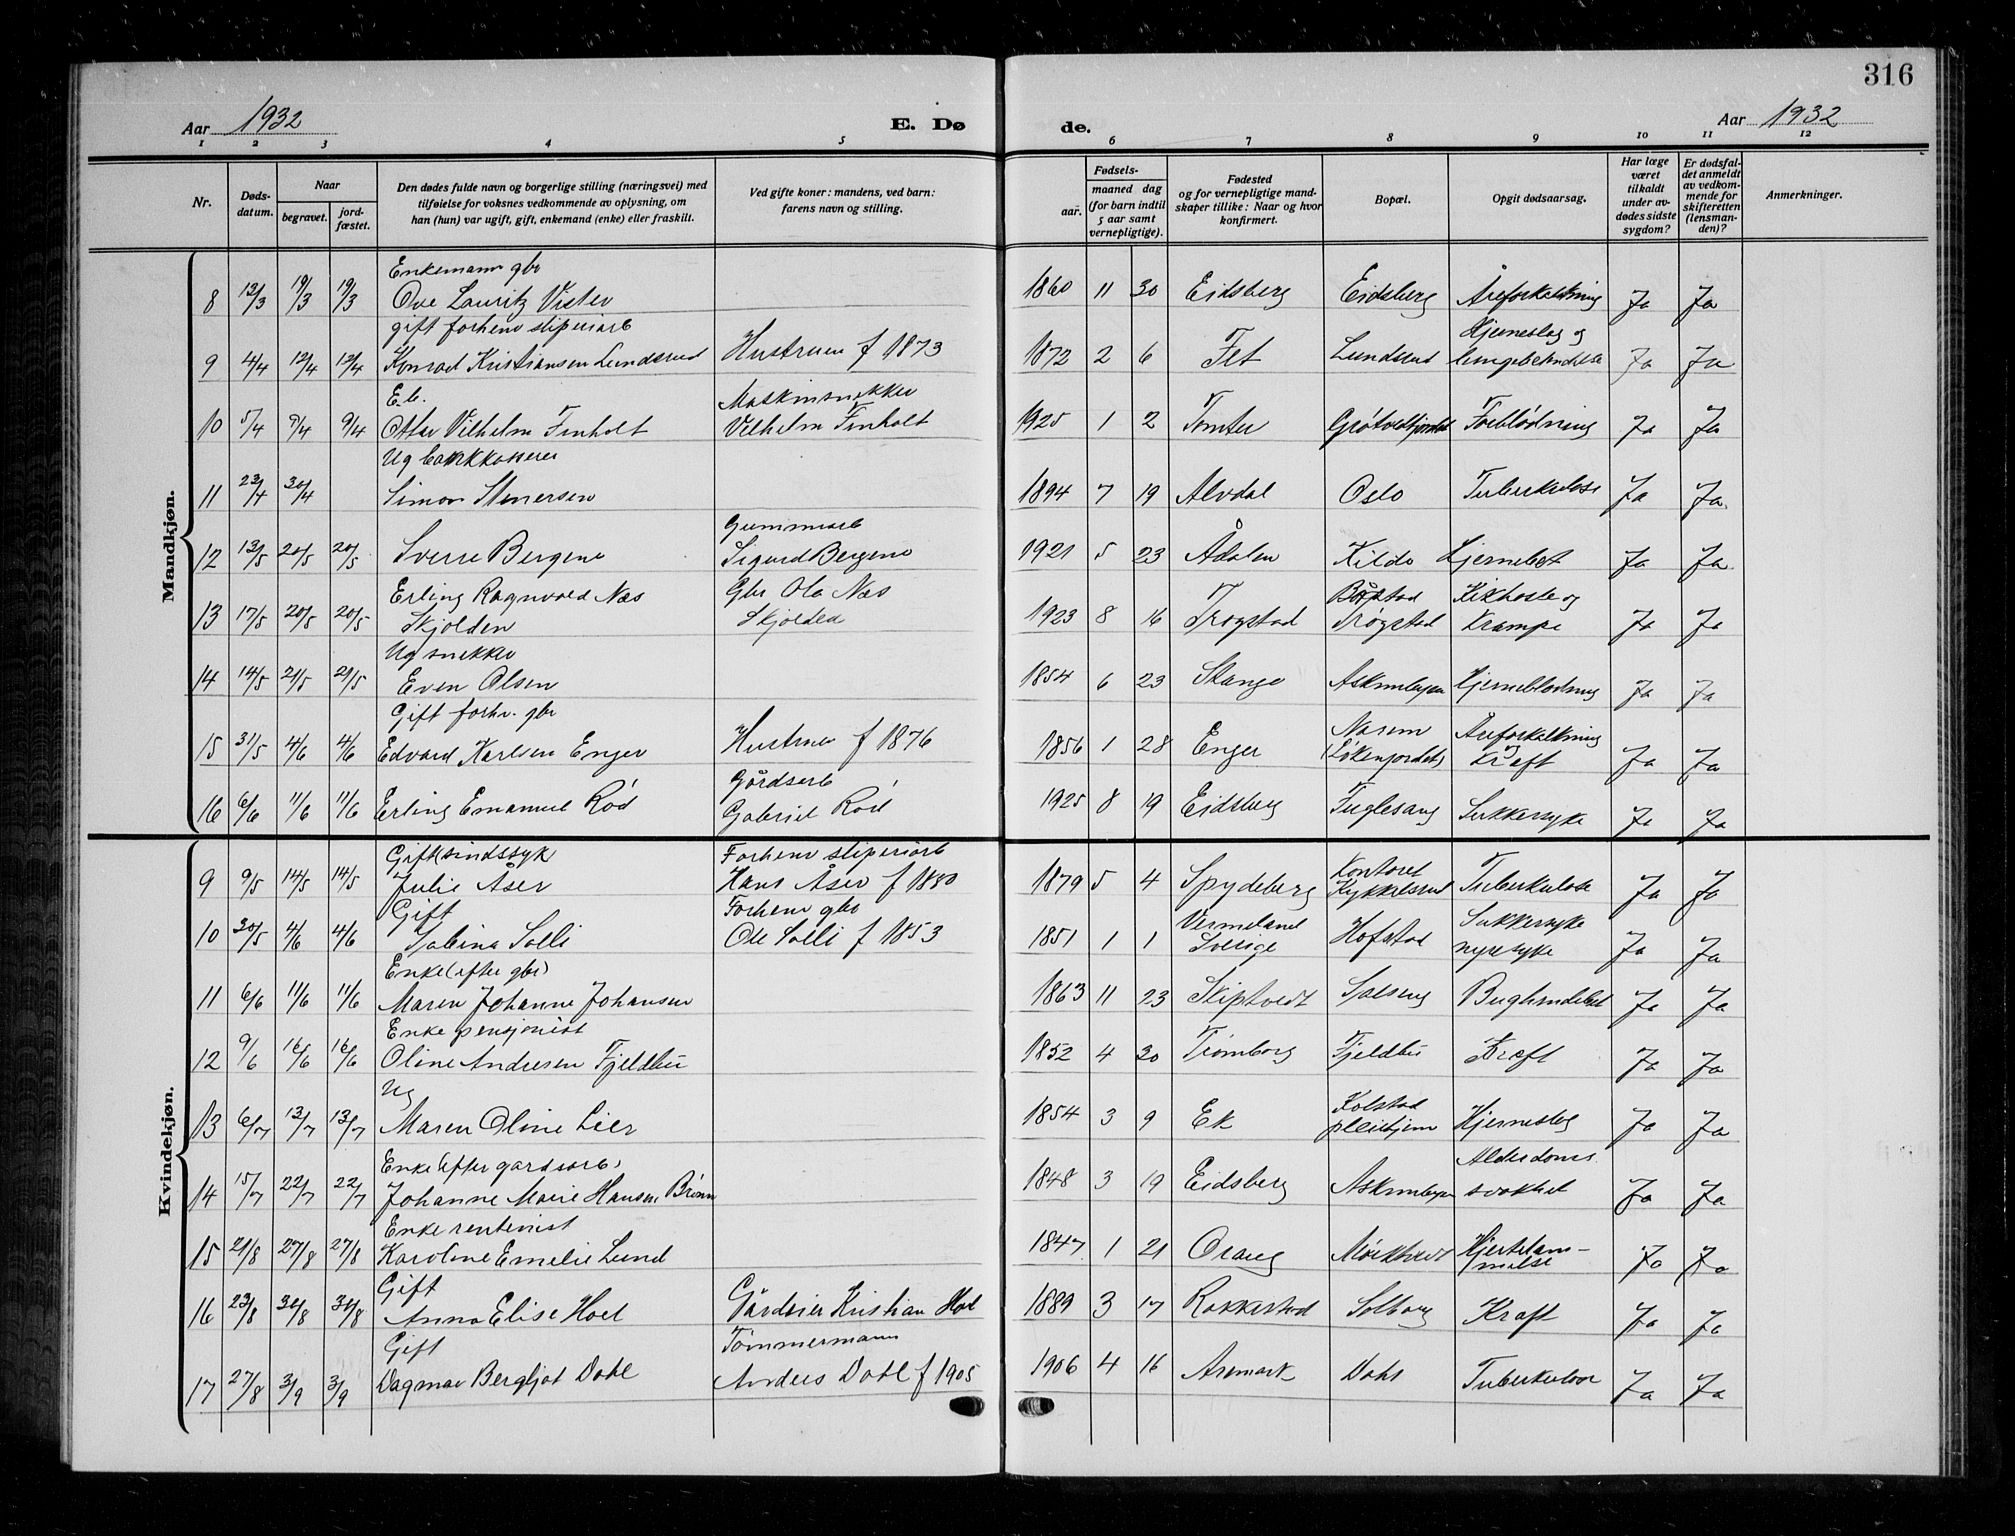 316
Aar 1932
E. Dø
de.
Aar 1932
1 2 3 4 5 6 7 8 9 10 11 12
Nr.
Døds-
datum.
Naar
begravet.
jord-
fæstet.
Den dødes fulde navn og borgerlige stilling (næringsvei) med
tilføielse for voksnes vedkommende av oplysning, om
han (hun) var ugift, gift, enkemand (enke) eller fraskilt.
Ved gifte koner: mandens, ved barn:
farens navn og stilling.
Fødsels-
aar.
maaned dag
(for barn indtil
5 aar samt
vernepligtige).
Fødested
og for vernepligtige mand-
skaper tillike: Naar og hvor
konfirmert.
Bopæl.
Opgit dødsaarsag.
Har læge
været
tilkaldt
under av-
dødes sidste
sygdom?
Er dødsfal-
det anmeldt
av vedkom-
mende for
skifteretten
(lensman-
den)?
Anmerkninger.
Mandkjøn.
Enkemann gbr
8 13/3 19/3 19/3 Ove Lauritz Vister 1860 11 30 Eidsberg Eidsberg Åreforkalkning Ja Ja
gift forhenv sliperiarb Hjerneslag og
9 4/4 12/4 12/4 Konrad Kristiansen Lundsrud Hustruen f 1873 1872 2 6 Fet Lundsrud lungebetendelse Ja Ja
E.b. Maskinsnekker
10 5/4 9/4 9/4 Ottar Vilhelm Finholt Vilhelm Finholt 1925 1 2 Tomter Forblødning Ja Ja
Ug bankkasserer
11 23/4 30/4 Simon Stenersen 1894 7 19 Alvdal Oslo Tuberkulose Ja Ja
Gummiarb
12 13/5 20/5 20/5 Sverre Bergene Sigurd Bergene 1921 5 23 Ådalen Kilde Ja Ja
Erling Ragnvald Næs Gbr Ola Næs Båstad Kikhoste og
13 17/5 20/5 20/5 Skjolden Skjolden 1923 8 16 Trøgstad Trøgstad Krampe Ja Ja
Ug snekker
14 14/5 21/5 21/5 Even Olsen 1854 6 23 Stange Askimbyen Hjerneblødning Ja Ja
Gift forhv. gbr Åreforkalkning
15 31/5 4/6 4/6 Edvard Karlsen Enger Hustruen f 1876 1856 1 28 Enger (Løkenjordet) Kræft Ja Ja
Gårdsarb
16 6/6 11/6 11/6 Erling Emanuel Rød Gabriel Rød 1925 8 19 Eidsberg Fuglesang Sukkersyke Ja Ja
Kvindekjøn.
Gift (sindssyk Forhenv sliperiarb Kontoret
9 9/5 14/5 14/5 Julie Åser Hans Åser f 1880 1879 5 4 Spydeberg Kykkelsrud Tuberkulose Ja Ja
Gift Forhenv gbr Vermeland Sukkersyke
10 30/5 4/6 4/6 Sabina Solli Ole Solli f 1853 1851 1 1 Sverige Hofstad nyresyke Ja Ja
Enke (efter gbr)
11 6/6 11/6 11/6 Maren Johanne Johansen 1863 11 23 Skiptvedt Ja Ja
Enke pensjonist
12 9/6 16/6 16/6 Oline Andresen Fjeldbu 1852 4 30 Trømborg Fjeldbu Kræft Ja Ja
Ug Kolstad
13 6/7 13/7 13/7 Maren Oline Lier 1854 3 9 Ek pleiehjem Hjerneslag Ja Ja
Enke (efter gardsarb) Alderdoms
14 15/7 22/7 22/7 Johanne Marie Hansen Brønn 1848 3 19 Eidsberg Askimbyen svakhet Ja Ja
Enke rentenist Hjertelam-
15 21/8 27/8 27/8 Karoline Emelie Lund 1847 1 21 melse Ja Ja
Gift
16 23/8 30/8 30/8 Anna Elise Hoel Gårdeier Kristian Hoel 1889 3 17 Rakkestad Solborg Kræft Ja Ja
Gift Tømmermann
17 27/8 3/9 3/9 Dagmar Bergljot Dahl Anders Dahl f 1905 1906 4 16 Aremark Dahl Tuberkulose Ja Ja